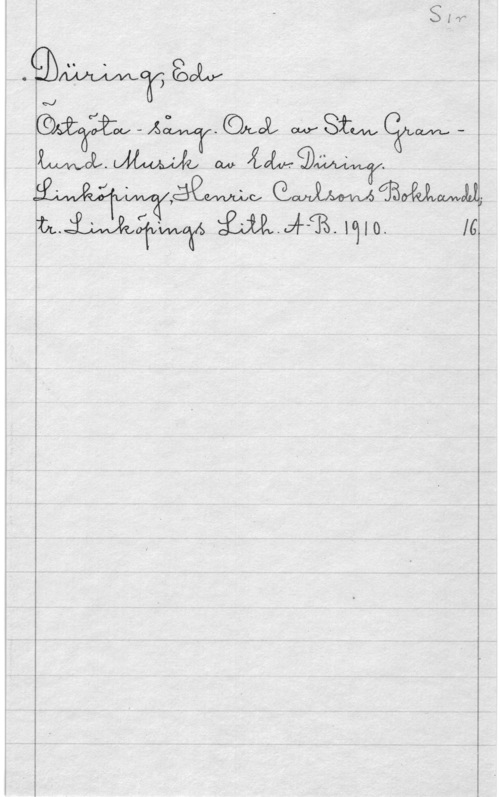 S1r
Düring, Edv
Östgöta-sång. Ord av Sten Gran-
lund. Musik av Edv. Düring.
Linköping, Henric Carlsons Bokhandel,
tr. Linköpings Lith. A-B. 1910. 16.